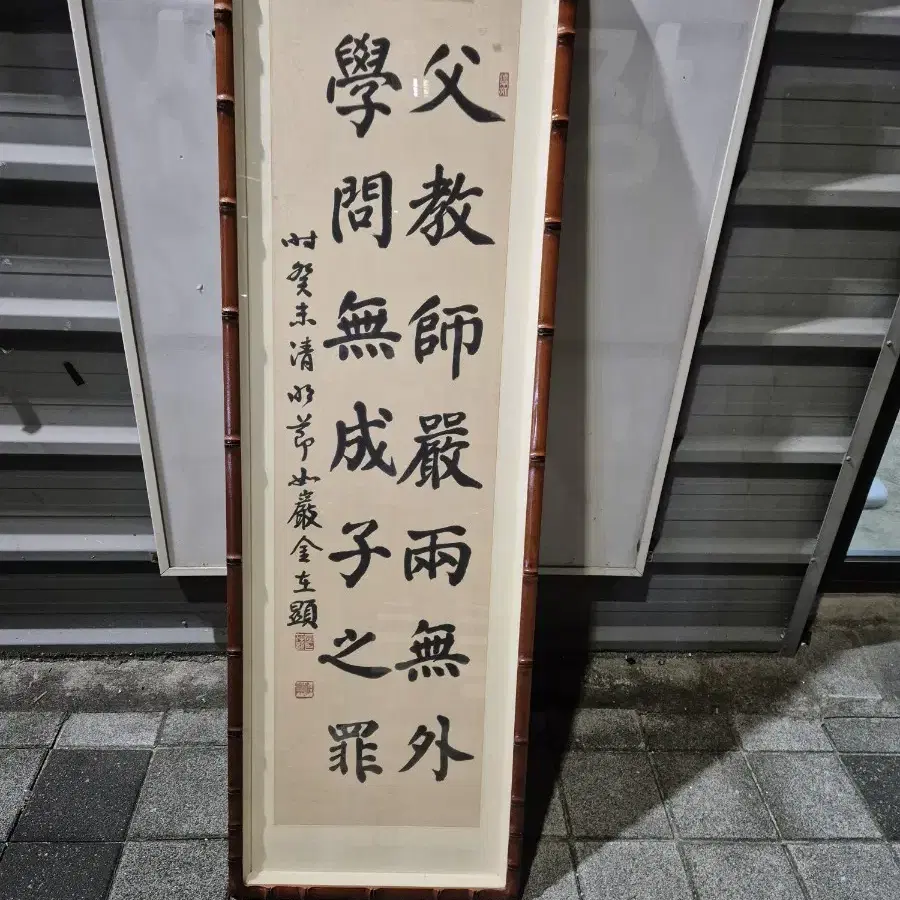 父教師嚴兩無外
學問無成子之罪
時癸未清明節如嚴金在顯